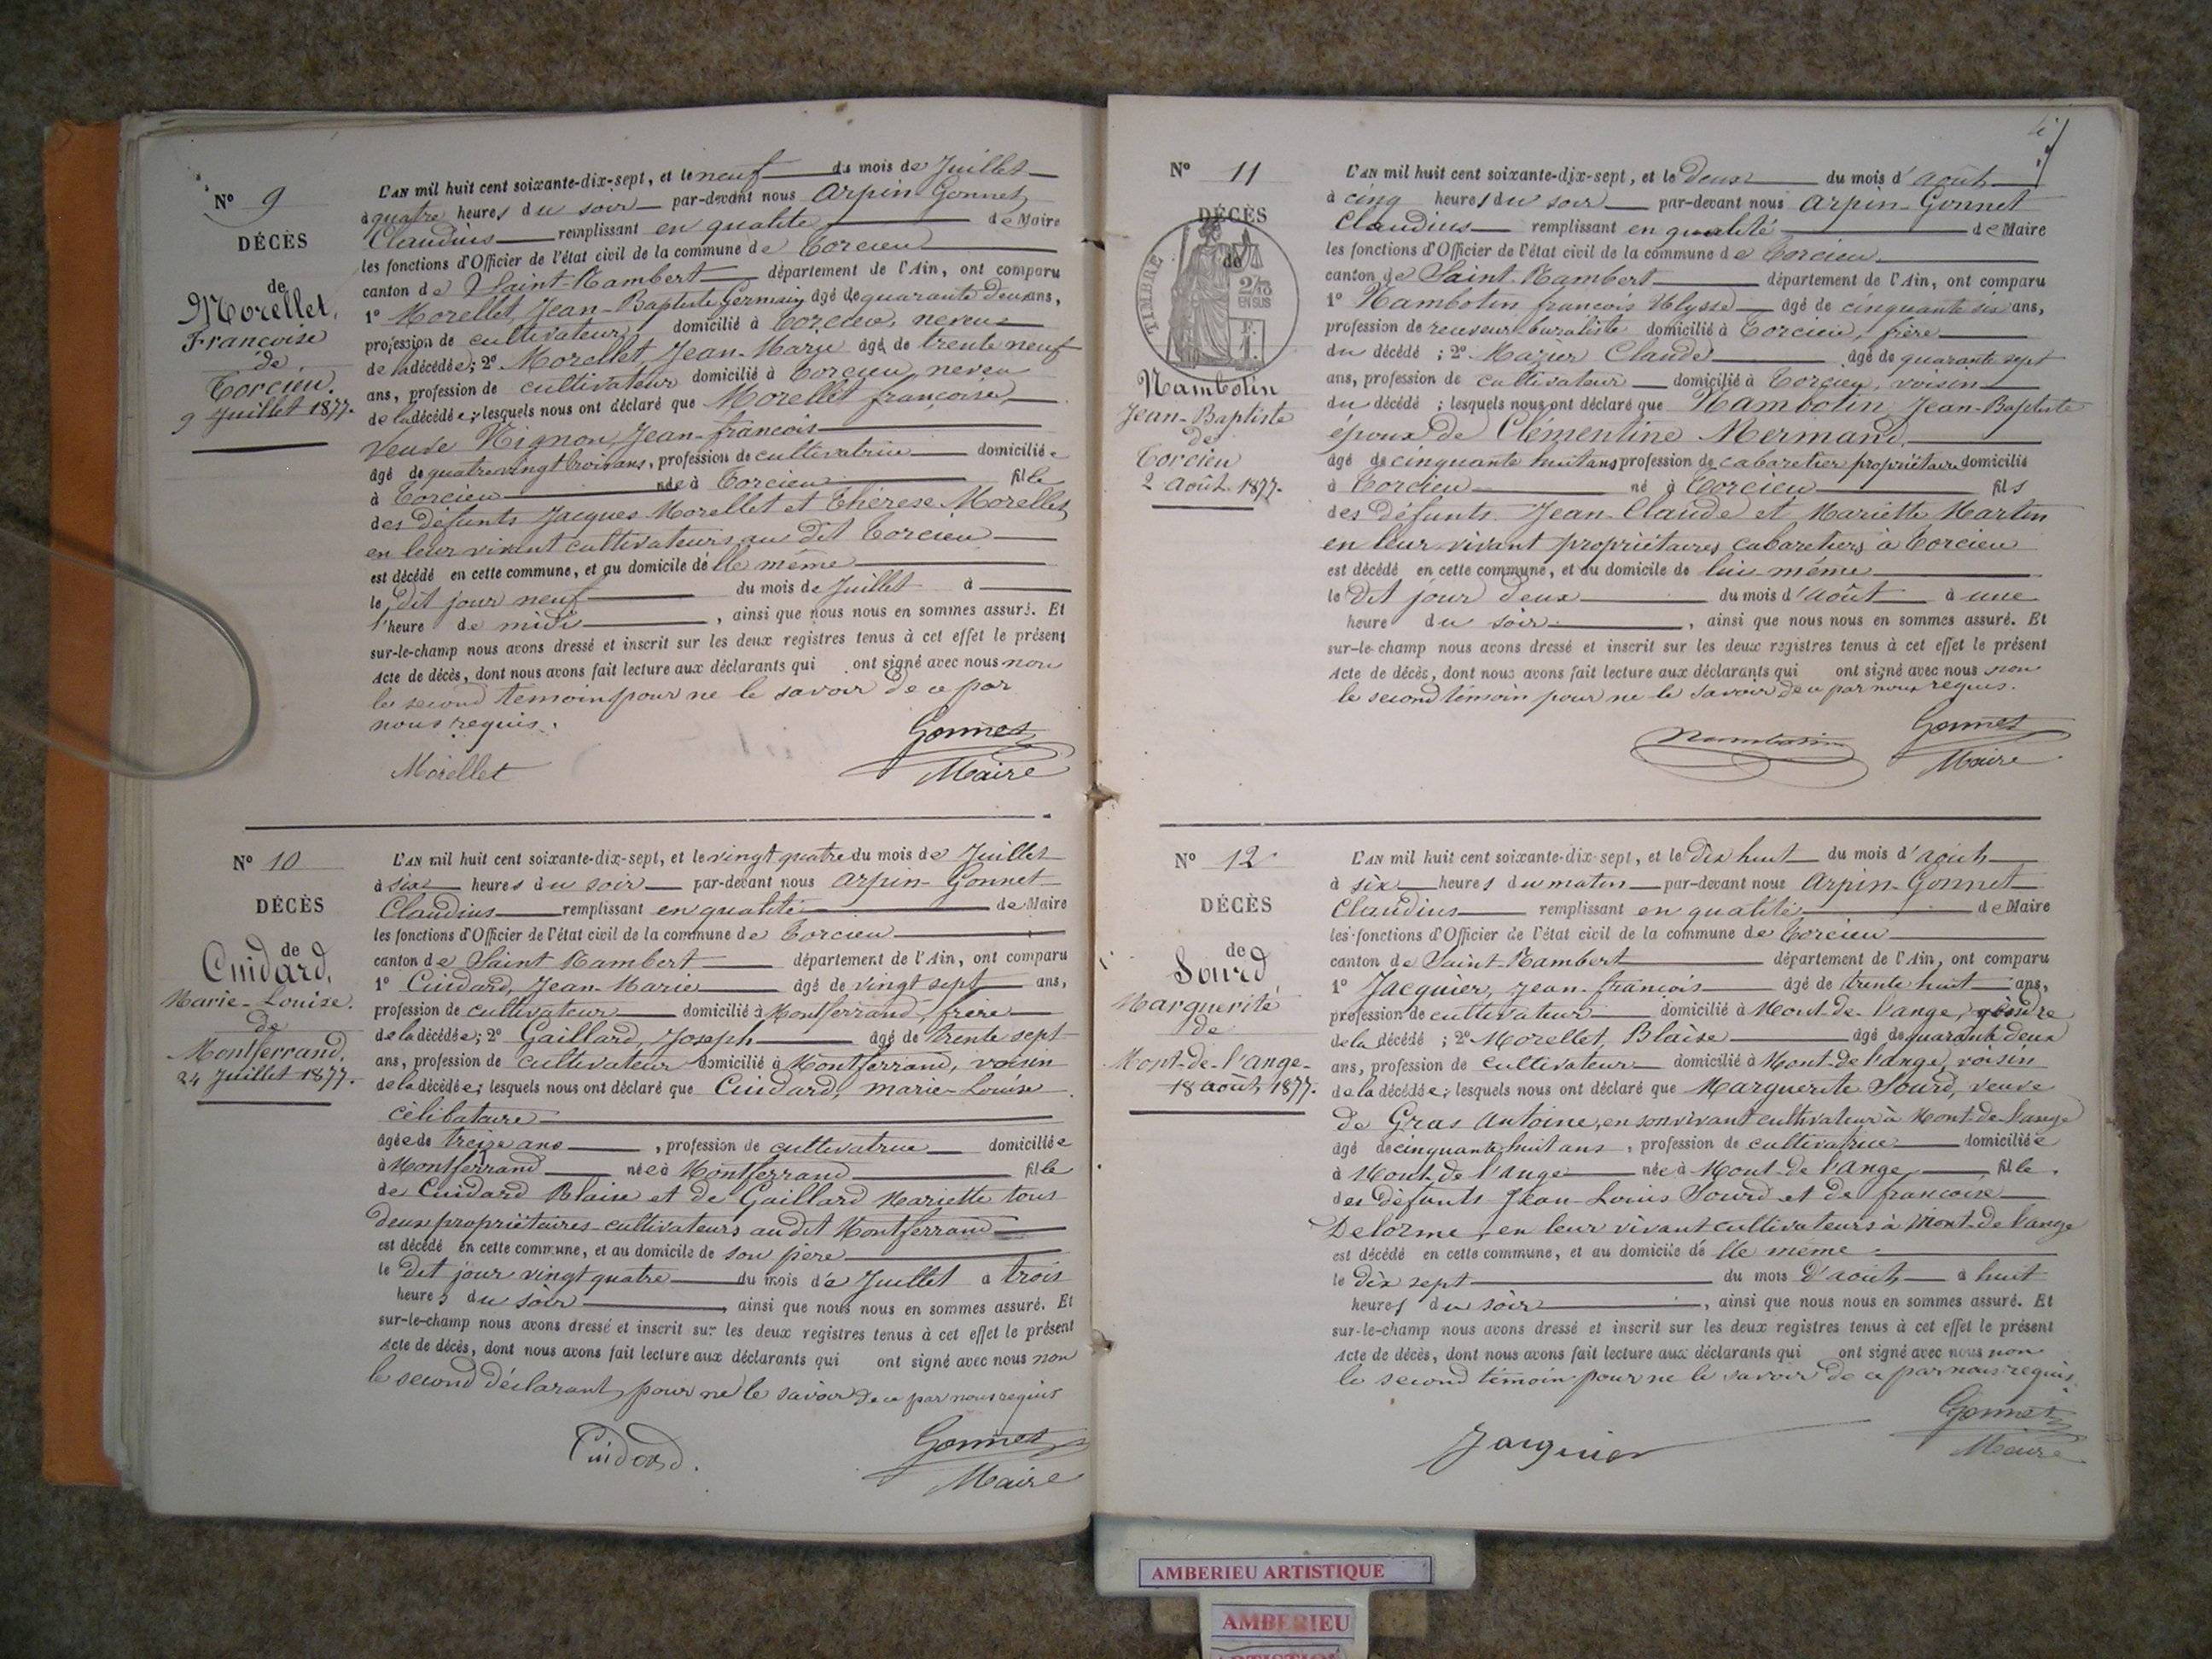 N° 9
DÉCÈS
de
Morellet,
Françoise
de
Torcieu.
9 Juillet 1877.
L'AN mil huit cent soixante-dix-sept, et le neuf du mois de Juillet
à quatre heures du soir par-devant nous Arpin Gonnet
Claudius remplissant en qualité de Maire
les fonctions d'Officier de l'état civil de la commune de Torcieu
canton de Saint-Rambert département de l'Ain, ont comparu
1° Morellet Jean-Baptiste Germain âgé de quarante deux ans,
profession de cultivateur domicilié à Torcieu, neveu
de la décédée; 2° Morellet, Jean-Marie âgé de trente neuf
ans, profession de cultivateur domicilié à Torcieu neveu
de la décédée; lesquels nous ont déclaré que Morellet françoise,
veuve Jean-françois
âgé de quatre vingt trois ans, profession de cultivatrice domiciliée
à Torcieu née à Torcieu fille
des défunts Jacques Morellet et Thérèse Morellet
en leur vivant cultivateurs au dit Torcieu
est décédé en cette commune, et au domicile d'elle même
le dit jour neuf du mois de Juillet à
l'heure de midi, ainsi que nous nous en sommes assuré. Et
sur-le-champ nous avons dressé et inscrit sur les deux registres tenus à cet effet le présent
Acte de décès, dont nous avons fait lecture aux déclarants qui ont signé avec nous non
le second témoin pour ne le savoir de ce par
nous requis.
Morellet
Gonnet
Maire
N° 10
DÉCÈS
de
Cuidard,
Marie-Louise.
de
Montferrand.
24 Juillet 1877.
L'AN mil huit cent soixante-dix-sept, et le vingt quatre du mois de Juillet
à six heures du soir par-devant nous Arpin-Gonnet
Claudius remplissant en qualité de Maire
les fonctions d'Officier de l'état civil de la commune de Torcieu
canton de Saint Rambert département de l'Ain, ont comparu
1° Cuidard, Jean-Marie âgé de vingt sept ans,
profession de cultivateur domicilié à Montferrand, frère
de la décédée; 2° Gaillard, Joseph âgé de trente sept
ans, profession de cultivateur domicilié à Montferrand, voisin
de la décédée; lesquels nous ont déclaré que Cuidard, marie-Louise
célibataire
âgée de treize ans, profession de cultivatrice domiciliée
à Montferrand née à Montferrand fille
de Cuidard Blaise et de Gaillard Mariette tous
deux propriétaires-cultivateurs audit Montferrand
est décédé en cette commune, et au domicile de son père
le dit jour vingt quatre du mois de Juillet à trois
heures du soir, ainsi que nous nous en sommes assuré. Et
sur-le-champ nous avons dressé et inscrit sur les deux registres tenus à cet effet le présent
Acte de décès, dont nous avons fait lecture aux déclarants qui ont signé avec nous non
le second déclarant, pour ne le savoir de ce par nous requis
Cuidard.
Gonnet
Maire
N° 11
DÉCÈS
de
TIMBRE
2/10
EN SUS
Nambotin
Jean-Baptiste
de
Torcieu
2 Août 1877.
L'AN mil huit cent soixante-dix-sept, et le deux du mois d'août
à cinq heures du soir par-devant nous Arpin-Gonnet
Claudius remplissant en qualité de Maire
les fonctions d'Officier de l'état civil de la commune de Torcieu
canton de Saint-Rambert département de l'Ain, ont comparu
1° Nambotin françois Ulysse âgé de cinquante six ans,
profession de receveur buraliste domicilié à Torcieu, frère
du décédé; 2° Mazier Claude âgé de quarante sept
ans, profession de cultivateur domicilié à Torcieu, voisin
du décédé; lesquels nous ont déclaré que Nambotin Jean-Baptiste
époux de Clémentine Mermand,
âgé de cinquante huit ans profession de cabaretier propriétaire domicilié
à Torcieu né à Torcieu fils
des défunts Jean-Claude et Mariette Martin
en leur vivant propriétaires cabaretiers à Torcieu
est décédé en cette commune, et au domicile de lui-même
le dit jour deux du mois d'août à une
heure du soir, ainsi que nous nous en sommes assuré. Et
sur-le-champ nous avons dressé et inscrit sur les deux registres tenus à cet effet le présent
Acte de décès, dont nous avons fait lecture aux déclarants qui ont signé avec nous non
le second témoin pour ne le savoir de ce par nous requis.
Nambotin
Gonnet
Maire
N° 12
DÉCÈS
de
Sourd
Marguerite
de
Mont-de-l'Ange-
18 août 1877.
L'AN mil huit cent soixante-dix-sept, et le dix huit du mois d'août
à six heures du matin par-devant nous Arpin-Gonnet
Claudius remplissant en qualité de Maire
les fonctions d'Officier de l'état civil de la commune de Torcieu
canton de Saint-Rambert département de l'Ain, ont comparu
1° Jacquier, Jean-françois âgé de trente huit ans,
profession de cultivateur domicilié à Mont-de-l'ange, gendre
de la décédé; 2° Morellet, Blaise âgé de quarante deux
ans, profession de cultivateur domicilié à Mont-de-l'ange, voisin
de la décédée; lesquels nous ont déclaré que Marguerite Sourd, veuve
de Gras Antoine, en son vivant cultivateur à Mont-de-l'ange
âgé de cinquante huit ans, profession de cultivatrice domiciliée
à Mont-de-l'ange née à Mont-de-l'ange fille
des défunts Jean-Louis Sourd et de françoise
Delorme, en leur vivant cultivateurs à Mont-de-l'ange
est décédé en cette commune, et au domicile d'elle même
le dix sept du mois d'août à huit
heures du soir, ainsi que nous nous en sommes assuré. Et
sur-le-champ nous avons dressé et inscrit sur les deux registres tenus à cet effet le présent
Acte de décès, dont nous avons fait lecture aux déclarants qui ont signé avec nous non
le second témoin pour ne le savoir de ce par nous requis.
Jacquier
Gonnet
Maire
AMBERIEU ARTISTIQUE
AMBERIEU
ARTISTIQUE